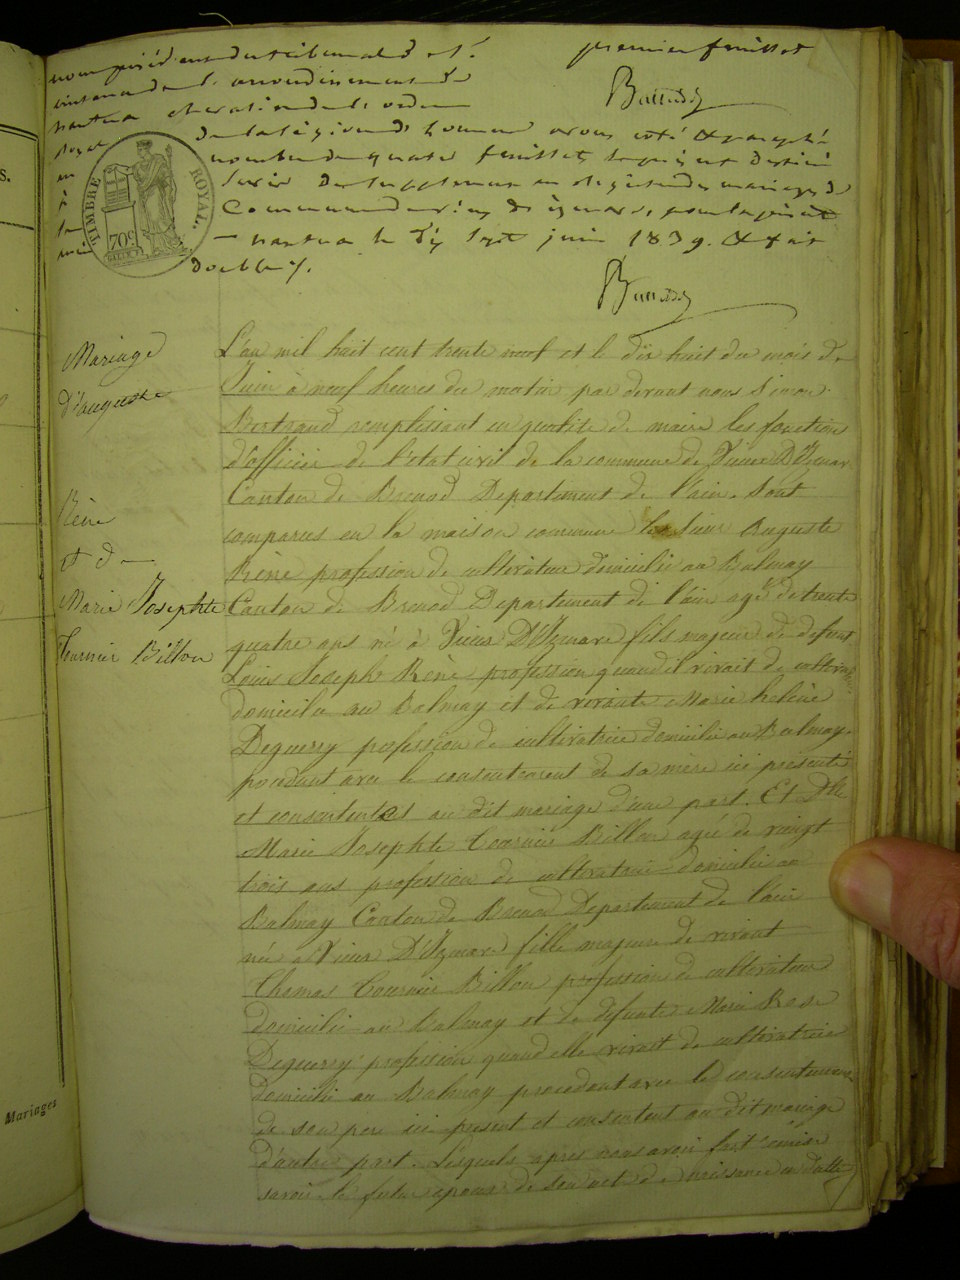 nous président du tribunal d
premier feuillet
arrondissement de
nantua chevalier de l'ordre
royal de la légion d'honneur avons coté & paraphé
nombre de quatre feuillets le présent destiné
à servir de supplément au registre des mariages de
la Commune de vieu d'izenave, pour la présente
nantua le dix sept juin 1839. & fait
double /.
TIMBRE ROYAL.
70c
Mariages
Mariage
D'auguste
Rène
et de
Marie Josephte
Tournier Billon
L'an mil huit cent trente neuf et le dix huit du mois de
Juin à neuf heures du matin par devant nous Simon
Bertrand remplissant en qualite de maire les fonctions
d'officier de l'état civil de la commune de Vieux D'Izenave
Canton de Brenod Departement de l'ain. Sont
comparus en la maison commune le sieur Auguste
Rène profession de cultivateur domicilié au Balmay
Canton de Brenod Departement de l'ain agé de trente
quatre ans né à Vieux D'Izenave fils majeur de defunt
Louis Joseph Rène profession quand il vivait de cultivateur
domicilié au Balmay et de vivante Marie helène
Deguerry profession de cultivatrice domicilié au Balmay.
procedant avec le consentement de sa mère ici presente
et consentent au dit mariage d'une part. Et Dlle
Marie Josephte Tournier Billon agé de vingt
trois ans profession de cultivatrice domicilié au
Balmay Canton de Brenod Departement de l'ain
née à Vieux D'Izenave fille majeure de vivant
Thomas Tournier Billon profession de cultivateur
domicilié au balmay et de defunte Marie Rose
Deguerry profession quand elle vivait de cultivatrice
domicilié au Balmay procedant avec le consentement
de son pere ici present et consentent au dit mariage
d'autre part. Lesquels apres nous avoir fait remise
savoir. le futur epoux de son act de naissance en datte